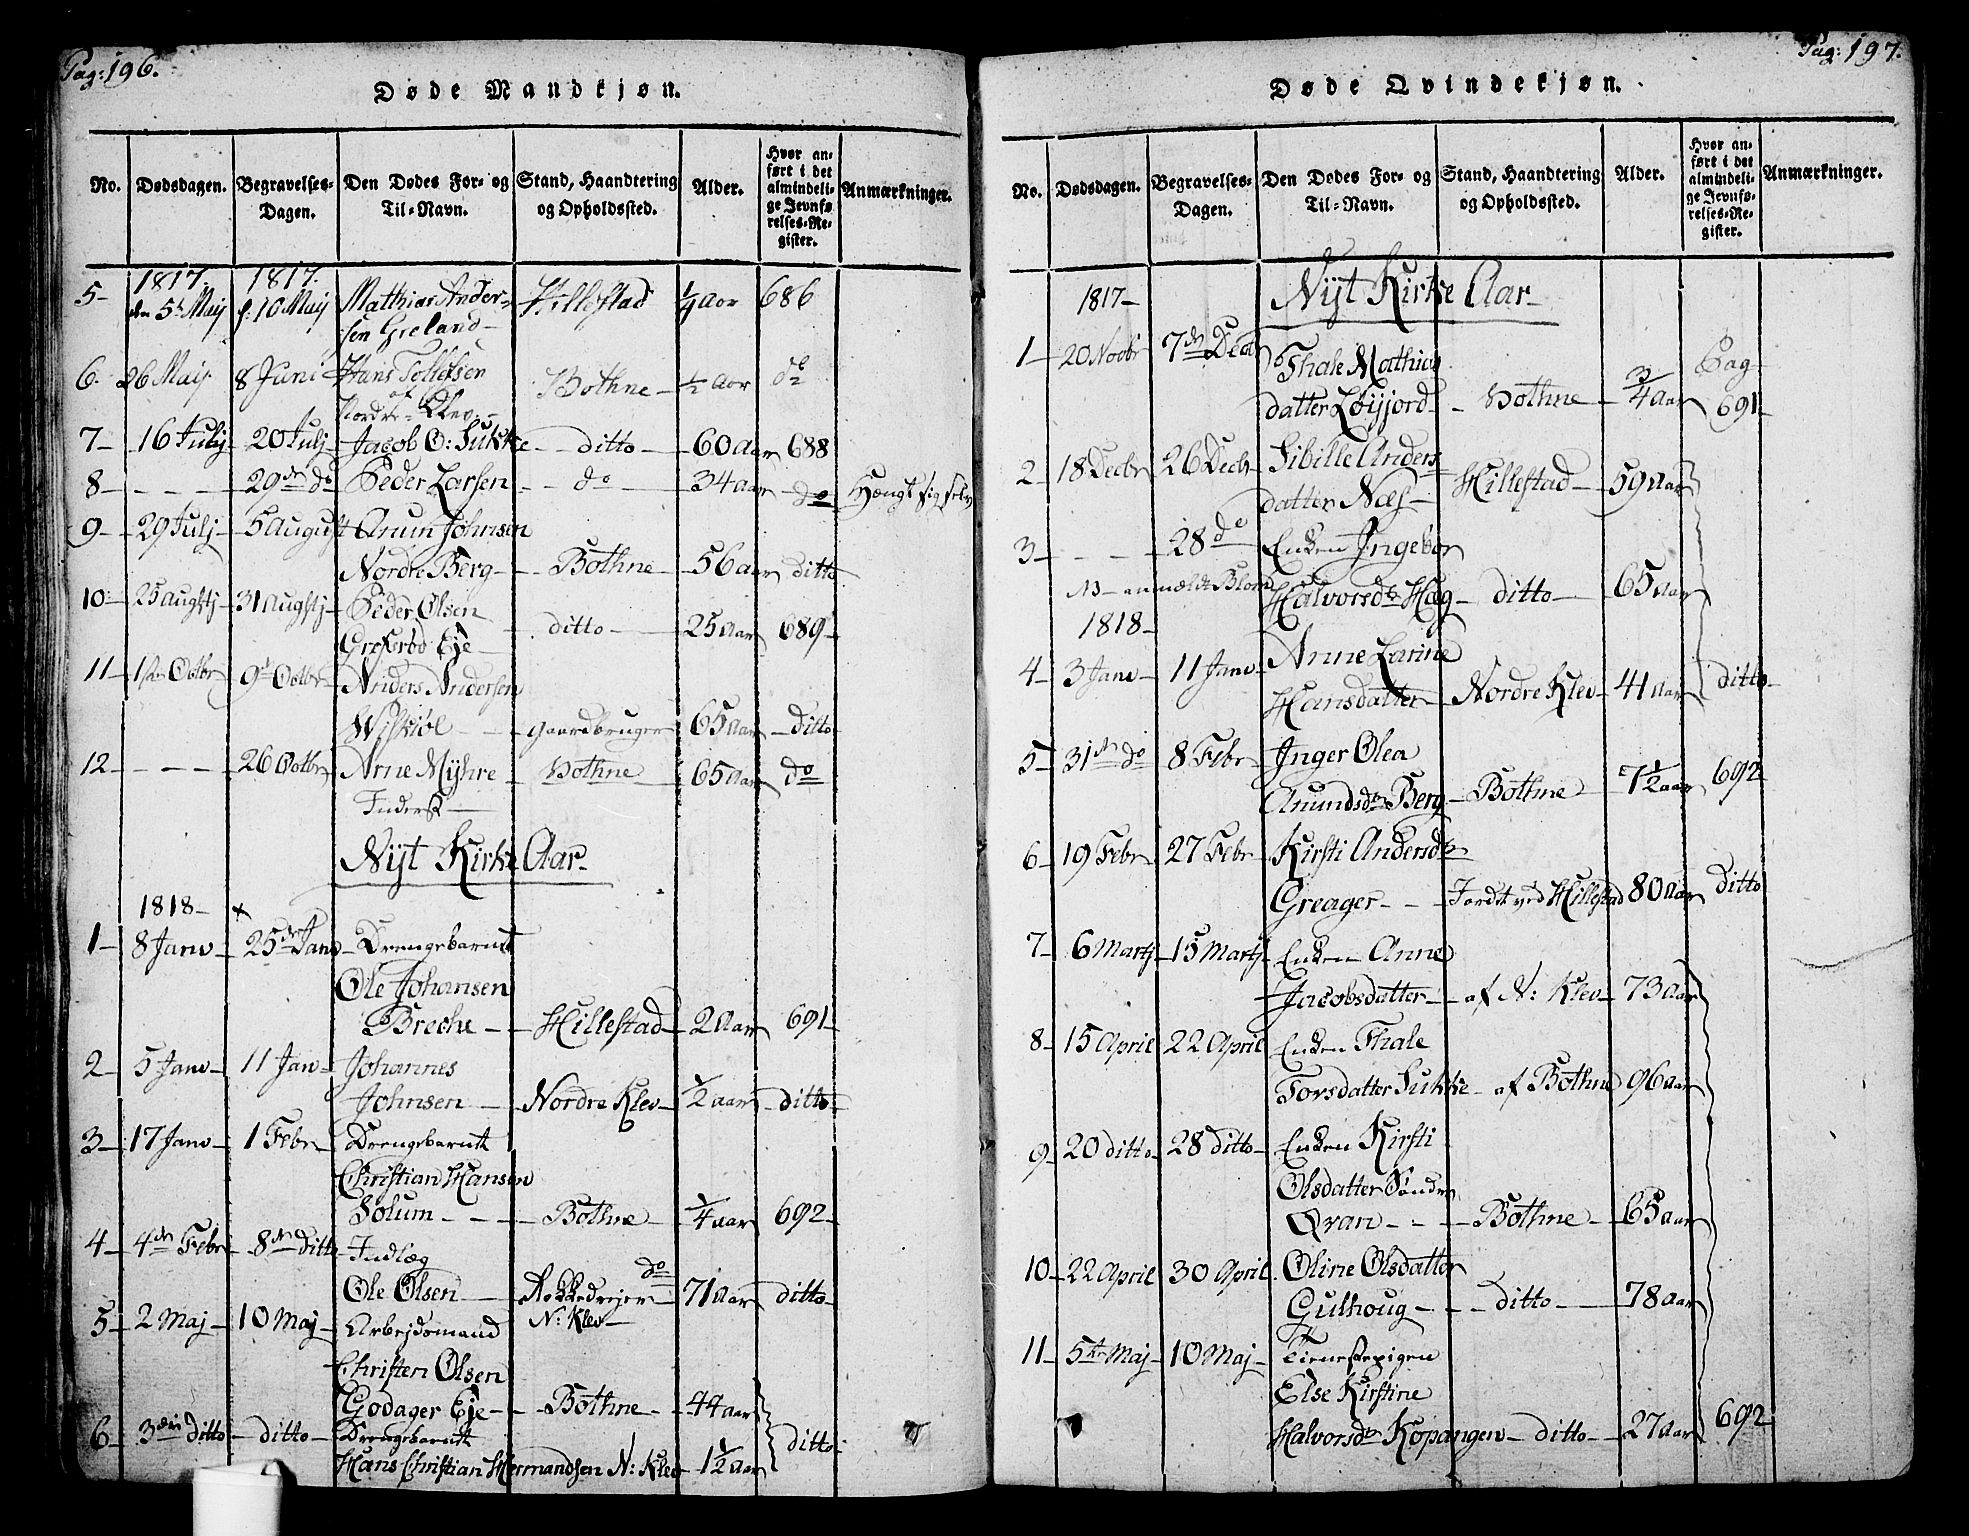 Pag: 196.
Døde Mandkjøn.
No. Dødsdagen. Begravelses-Dagen. Den Dødes For- og Til-Navn. Stand, Haandtering og Opholdssted. Alder. Hvor anført i det almindelige Jevnførelses-Register. Anmærkninger.
1817. 1817.
5- den 5te Maij 16 Maij Mathias Ander- Hillestad aar 686
sen Greland-
6. 26 Maij 8 Juni Hans Tollefsen Bothne- 1/2 aar do
af Nordre Klev-
7- 16 Julij- 20 Julj- Jacob O: Sukke- ditto- 60 aar 688
8- - - - 29de do Peder Larsen- do- 34 aar do Hængt sig selv
9- 29 Julj- 5 August Anun Johnsen
Nordre Berg- - Bothne- 56 aar ditto
10- 25 augstj- 31 Augstj- Peder Olsen
Eje- ditto- 25 aar 689-
11- Octbr 9d Octbr Anders Andersen
gaardbruger 65 aar- ditto-
12- - - - 26 Octbr Arne Myhre- Bothne- 65 aar do
Inderst-
Nyt Kirke Aar-
1818-
1- 8 Janv- 25de Janv- Drengebarnet
Ole Johansen
Breche- - Hillestad- 2 Aar 691-
2- 5 Janv- 11 Jan- Johannes
Johnsen- Nordre Klev- 1/2 aar- ditto-
3- 17 Janv- 1 Febr- Drengebarnet
Christian Hansen
Solum- - - Bothne- 1/4 aar 692-
4- 4de Febr- 8de ditto Indlæg do
Ole Olsen- 71 Aar ditto-
5- 2 Maj- 10 Maj- Arbejdsmand N: Klev-
Christen Olsen
Godager Eje- - Bothne- 44 aar
6- 3die ditto- ditto- Drengebarnet ditto-
Hans Christian Hermandsen N: Klev- 1 1/2 aar
Pag: 197.
Døde Qvindekjøn.
No. Dødsdagen. Begravelses-Dagen. Den Dødes For- og Til-Navn. Stand, Haandtering og Opholdssted. Alder. Hvor anført i det almindelige Jevnførelses-Register. Anmærkninger.
1817- Nyt Kirke Aar-
1- 20 Novbr 7de Dec Thale Mathias Pag
datter Løyjord- - Bothne- 3/4 aar 691-
2- 18 Decbr 26 Decbr Sibille Anders
datter Næs- Hillestad- 59 aar
3- - - 28 do Enken Ingebor
Halvorsdr Hag- ditto- 65 aar
1818-
4- 3 Janv- 11 Janv- Anne Larine
Hansdatter- Nordre Klev- 41 aar ditto-
5- 31de do 8 Febr Inger Olea
Anundsdr Berg- Bothne- 7 1/2 aar 692-
6- 19 Febr 27 Febr Kirsti Andersdr
Greager- - ved Hillestad 80 aar ditto
7- 6 Martj- 15 Martj- Enken Anne
Jacobsdatter- - af N: Klev- 73 aar
8- 15 April 22 April Enken Thale
Torsdatter Sukke- af Bothne 96 aar
9- 20 ditto- 28 ditto- Enken Kirsti
Olsdatter Sønder
Qvan- - - Bothne- 65 aar
10- 22 April 30 April Oline Olsdatter
Gulhoug- - - ditto- 78 aar
11- 5te Maj- 10 Maj- Tienestepigen
Else Kirstine
Halvorsdr Kopangen- ditto- 27 aar 692-